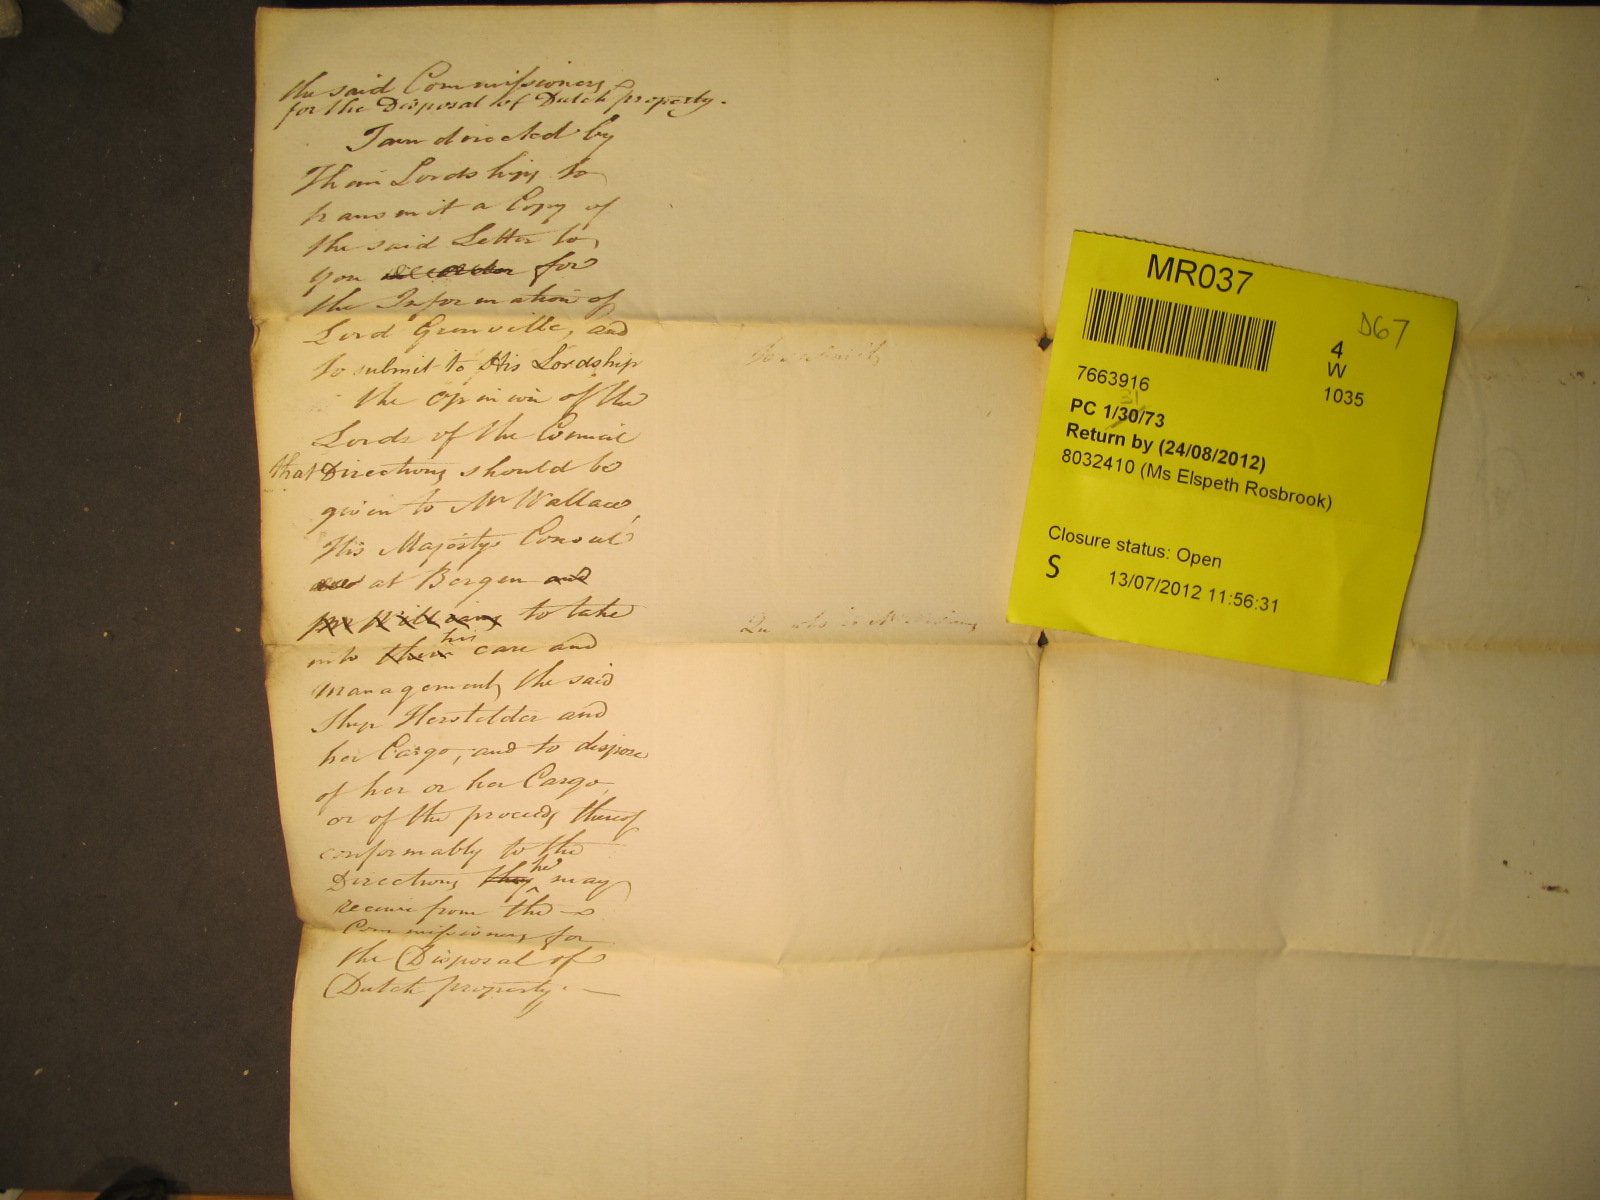 the said Commissioners
for the Disposal of Dutch property.
I am directed by
Their Lordships to
transmit a Copy of
the said Letter to
you for
the Information of
Lord Grenville, and
to submit to His Lordship
the Opinion of the
Lords of the Council
that Directions should be
given to Mr Wallace,
His Majestys Consul
at Bergen and
Mr Williams to take
into their his care and
management, the said
Ship Herstelder and
her Cargo, and to dispose
of her or her Cargo,
or of the proceeds thereof
conformably to the
Directions they he may
receive from the
Commissioners for
the Disposal of
Dutch property. —
to submit
Qu who is Mr Williams
MR037
D67
4
W
1035
7663916
31
PC 1/30/73
Return by (24/08/2012)
8032410 (Ms Elspeth Rosbrook)
Closure status: Open
S 13/07/2012 11:56:31